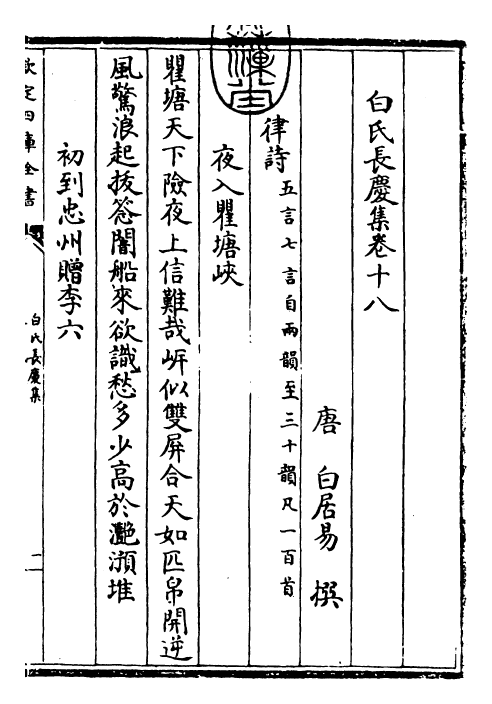 白氏長慶集卷十八
唐 白居易 撰
律詩 五言七言自兩韻至三十韻凡一百首
夜入瞿塘峽
瞿塘天下險夜上信難哉岍似雙屏合天如匹帛開逆
風驚浪起拔㮇闇船來欲識愁多少高於灧澦堆
初到忠州贈李六
欽定四庫全書
白氏長慶集
二